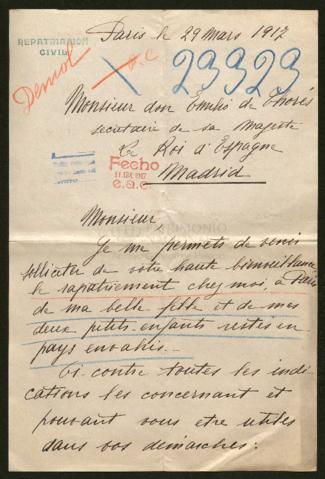 Paris le 29 Mars 1917
REPATRIACION
CIVIL
Demol
23923
Monsieur don Emilio de
secretaire de sa Majesté
Le Roi d'Espagne
Madrid
Fecho
Monsieur
Je me permets de venir
solliciter de votre haute bienveillance
le rapatriement chez moi, à Paris
de ma belle fille et de mes
deux petits-enfants restés en
pays envahis.
Ci-contre toutes les indi-
cations les concernant et
pouvant vous etre utiles
dans vos démarches: